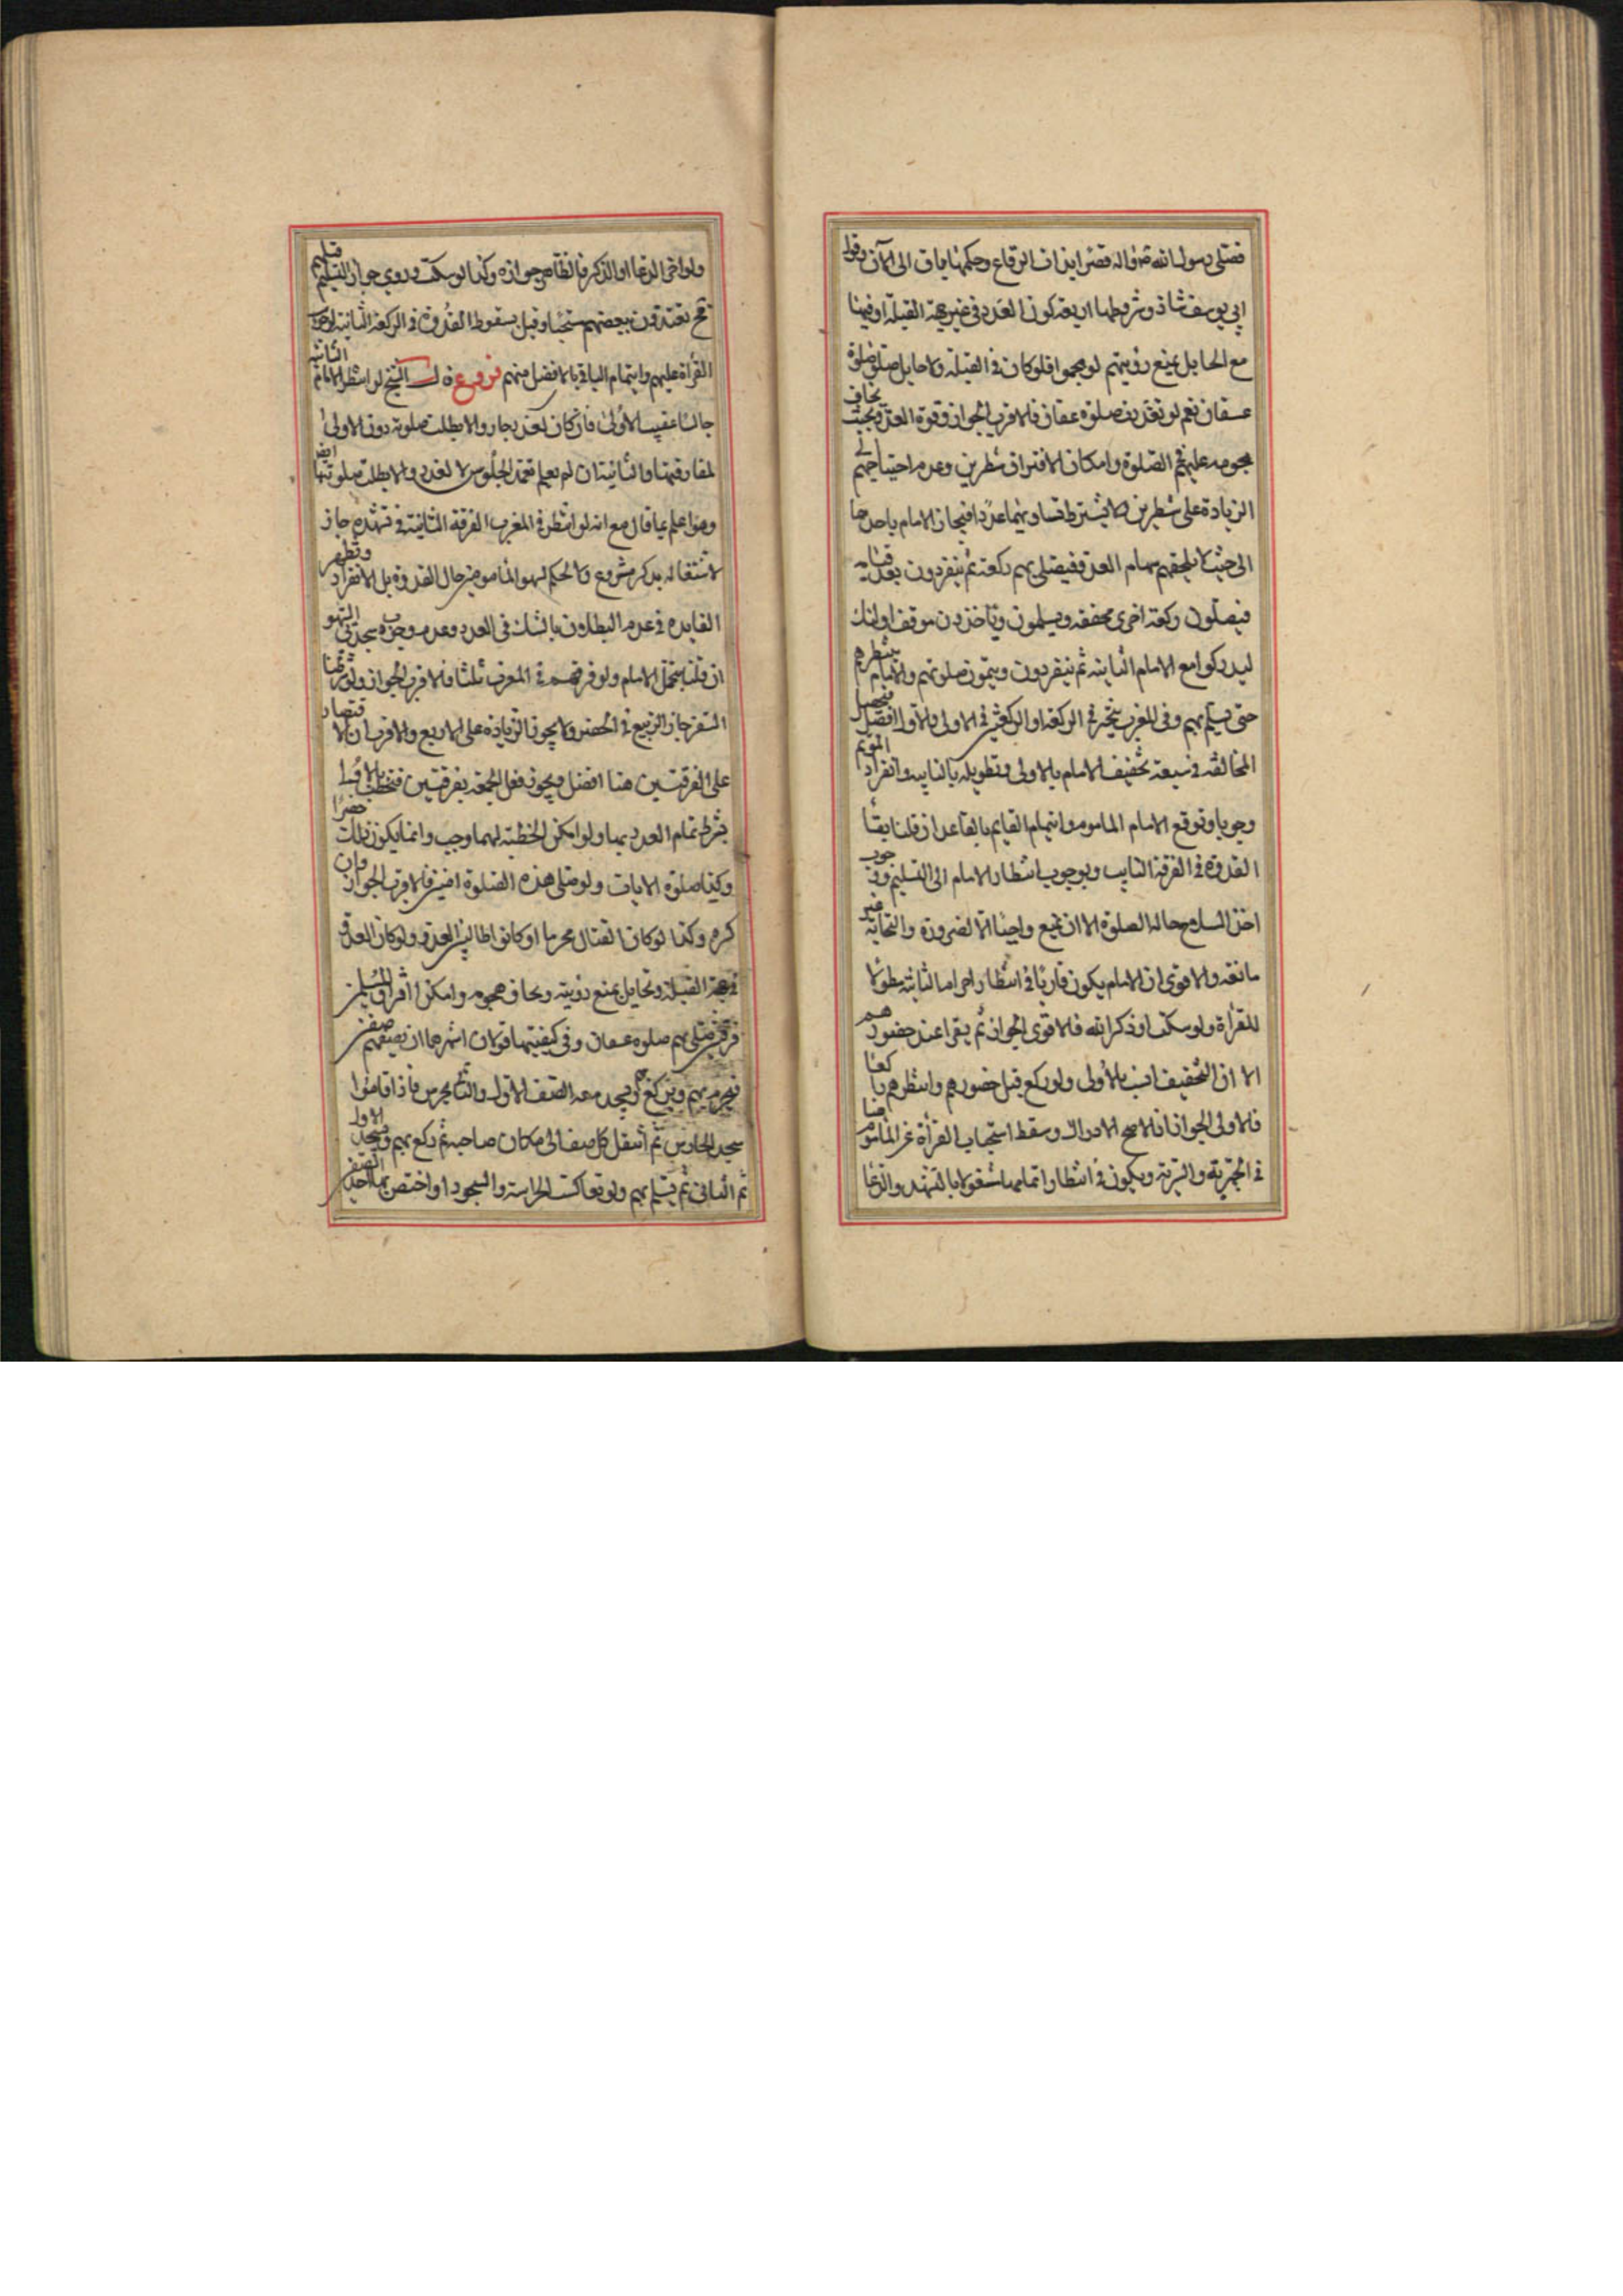 فصلى رسول الله ص واله قصرا بذات الرقاع وحكمها باق الى الان وقول
ابى يوسف شاذ وشروطها اربعة كون العدو فى غير جهة القبلة او فيها
مع الحايل يمنع رؤيتهم لو هجموا فلو كان فى القبلة ولا حايل صلى صلوة
عسفان نعم لو تعذرت صلوة عسفان فالاقرب الجواز وقوة العدو بحيث يخاف
هجومه عليهم فى الصلوة وامكان الافتراق شطرين وعدم احتياجهم الى
الزيادة على شطرين ولا يشترط تساويهما عددا فينحاز الامام باحدهما
الى حيث لا يلحقهم سهام العدو فيصلى بهم ركعة ثم ينفردون بعد قيامه
فيصلون ركعة اخرى مخففة ويسلمون وياخذون موقف اولئك
ليدركوا مع الامام الثانية ثم ينفردون ويتمون صلوتهم والامام ينتظرهم
حتى يسلم بهم وفى المغرب يتخير فى الركعة او الركعتين فى الاولى والاول افضل فيحصل
المخالفة فى سبعة تخفيف الامام بالاولى وتطويله بالثانية وانفراد المؤتم
وجوبا وتوقع الامام الماموم وايتمام القايم بالقاعد ان قلنا ببقاء
القدوة فى الفرقة الثانية وبوجوب انتظار الامام الى التسليم ووجوب
اخذ السلاح حالة الصلوة الا ان يمنع واجبا الا لضرورة والنجاسة غير
مانعة والاقوى ان الامام يكون قاريا فى انتظار احرام الثانية مطولا
للقراة ولو سكت او ذكر الله فالاقوى الجواز ثم يقرا عند حضورهم
الا ان التخفيف انسب بالاولى ولو ركع قبل حضورهم وانتظرهم راكعا
فالاولى الجواز ان الاصح الادراك وسقط استحباب القراة عن الماموم هنا
فى الجهرية والسرية ويكون فى انتظار اتمامهم مشغولا بالتشهد والدعا
ولو اخر الدعا او الذكر فالظاهر جوازه وكذا لو سكت وروى جواز التسليم قبلهم
فح يقتدون ببعضهم ستحبا وقيل بسقوط القدوة فى الركعة الثانية لوجوب
القراة عليهم وايتمام الباقى بالافضل منهم فروع ة ل الشيخ لو انتظر الامام الثانية
جالسا عقيب الاولى فان كان لعذر جاز والا بطلت صلوته دون الاولى
لمفارقتها والثانية ان لم يعلم تعمد الجلوس لا لعذر والا بطلت صلوتها ايضا
وهذا علم مما قال مع انه لو انتظر فى المغرب الفرقة الثانية فى تشهده جاز
لاشتغاله بذكر مشروع ولا حكم لسهو المامومين حال القدوة بل الانفراد وتظهر
الفايدة فى عدم البطلان بالشك فى العدد وعدم وجوب سجدتى السهو
ان قلنا بتحمل الامام ولو فرقهم فى المغرب ثلثا فالاقرب الجواز ولو قلنا
السفر جاز التربيع فى الحضر ولا يجوز الزيادة على الاربع والاقرب ان الاقتصار
على الفرقتين هنا افضل ويجوز فعل الجمعة بفرقتين فيخطب بالاولى
بشرط تمام العدد بها ولو امكن الخطبة لهما وجب وانما يكون ذلك حضرا
وكذا صلوة الايات ولو صلى هذه الصلوة امنين فالاقرب الجواز وان
كره وكذا لو كان القتال محرما او كانوا طالبين العدو ولو كان العدو
فى جهة القبلة ولا حايل يمنع رؤيته ويخاف هجومه وامكن افتراق المسلمين
فرقتين صلى بهم صلوة عسفان وفى كيفيتها قولان اشهرهما ان يصفهم صفين
فيحرم بهم ويركع ويسجد معه الصف الاول والثانى يحرس فاذا قاموا
سجد الحارس ثم انتقل كل صف الى مكان صاحبه ثم ركع بهم وسجد الاول
ثم الثانى ثم يسلم بهم ولو تعاكست الحراسة والسجود او اختص بها احد الصفين